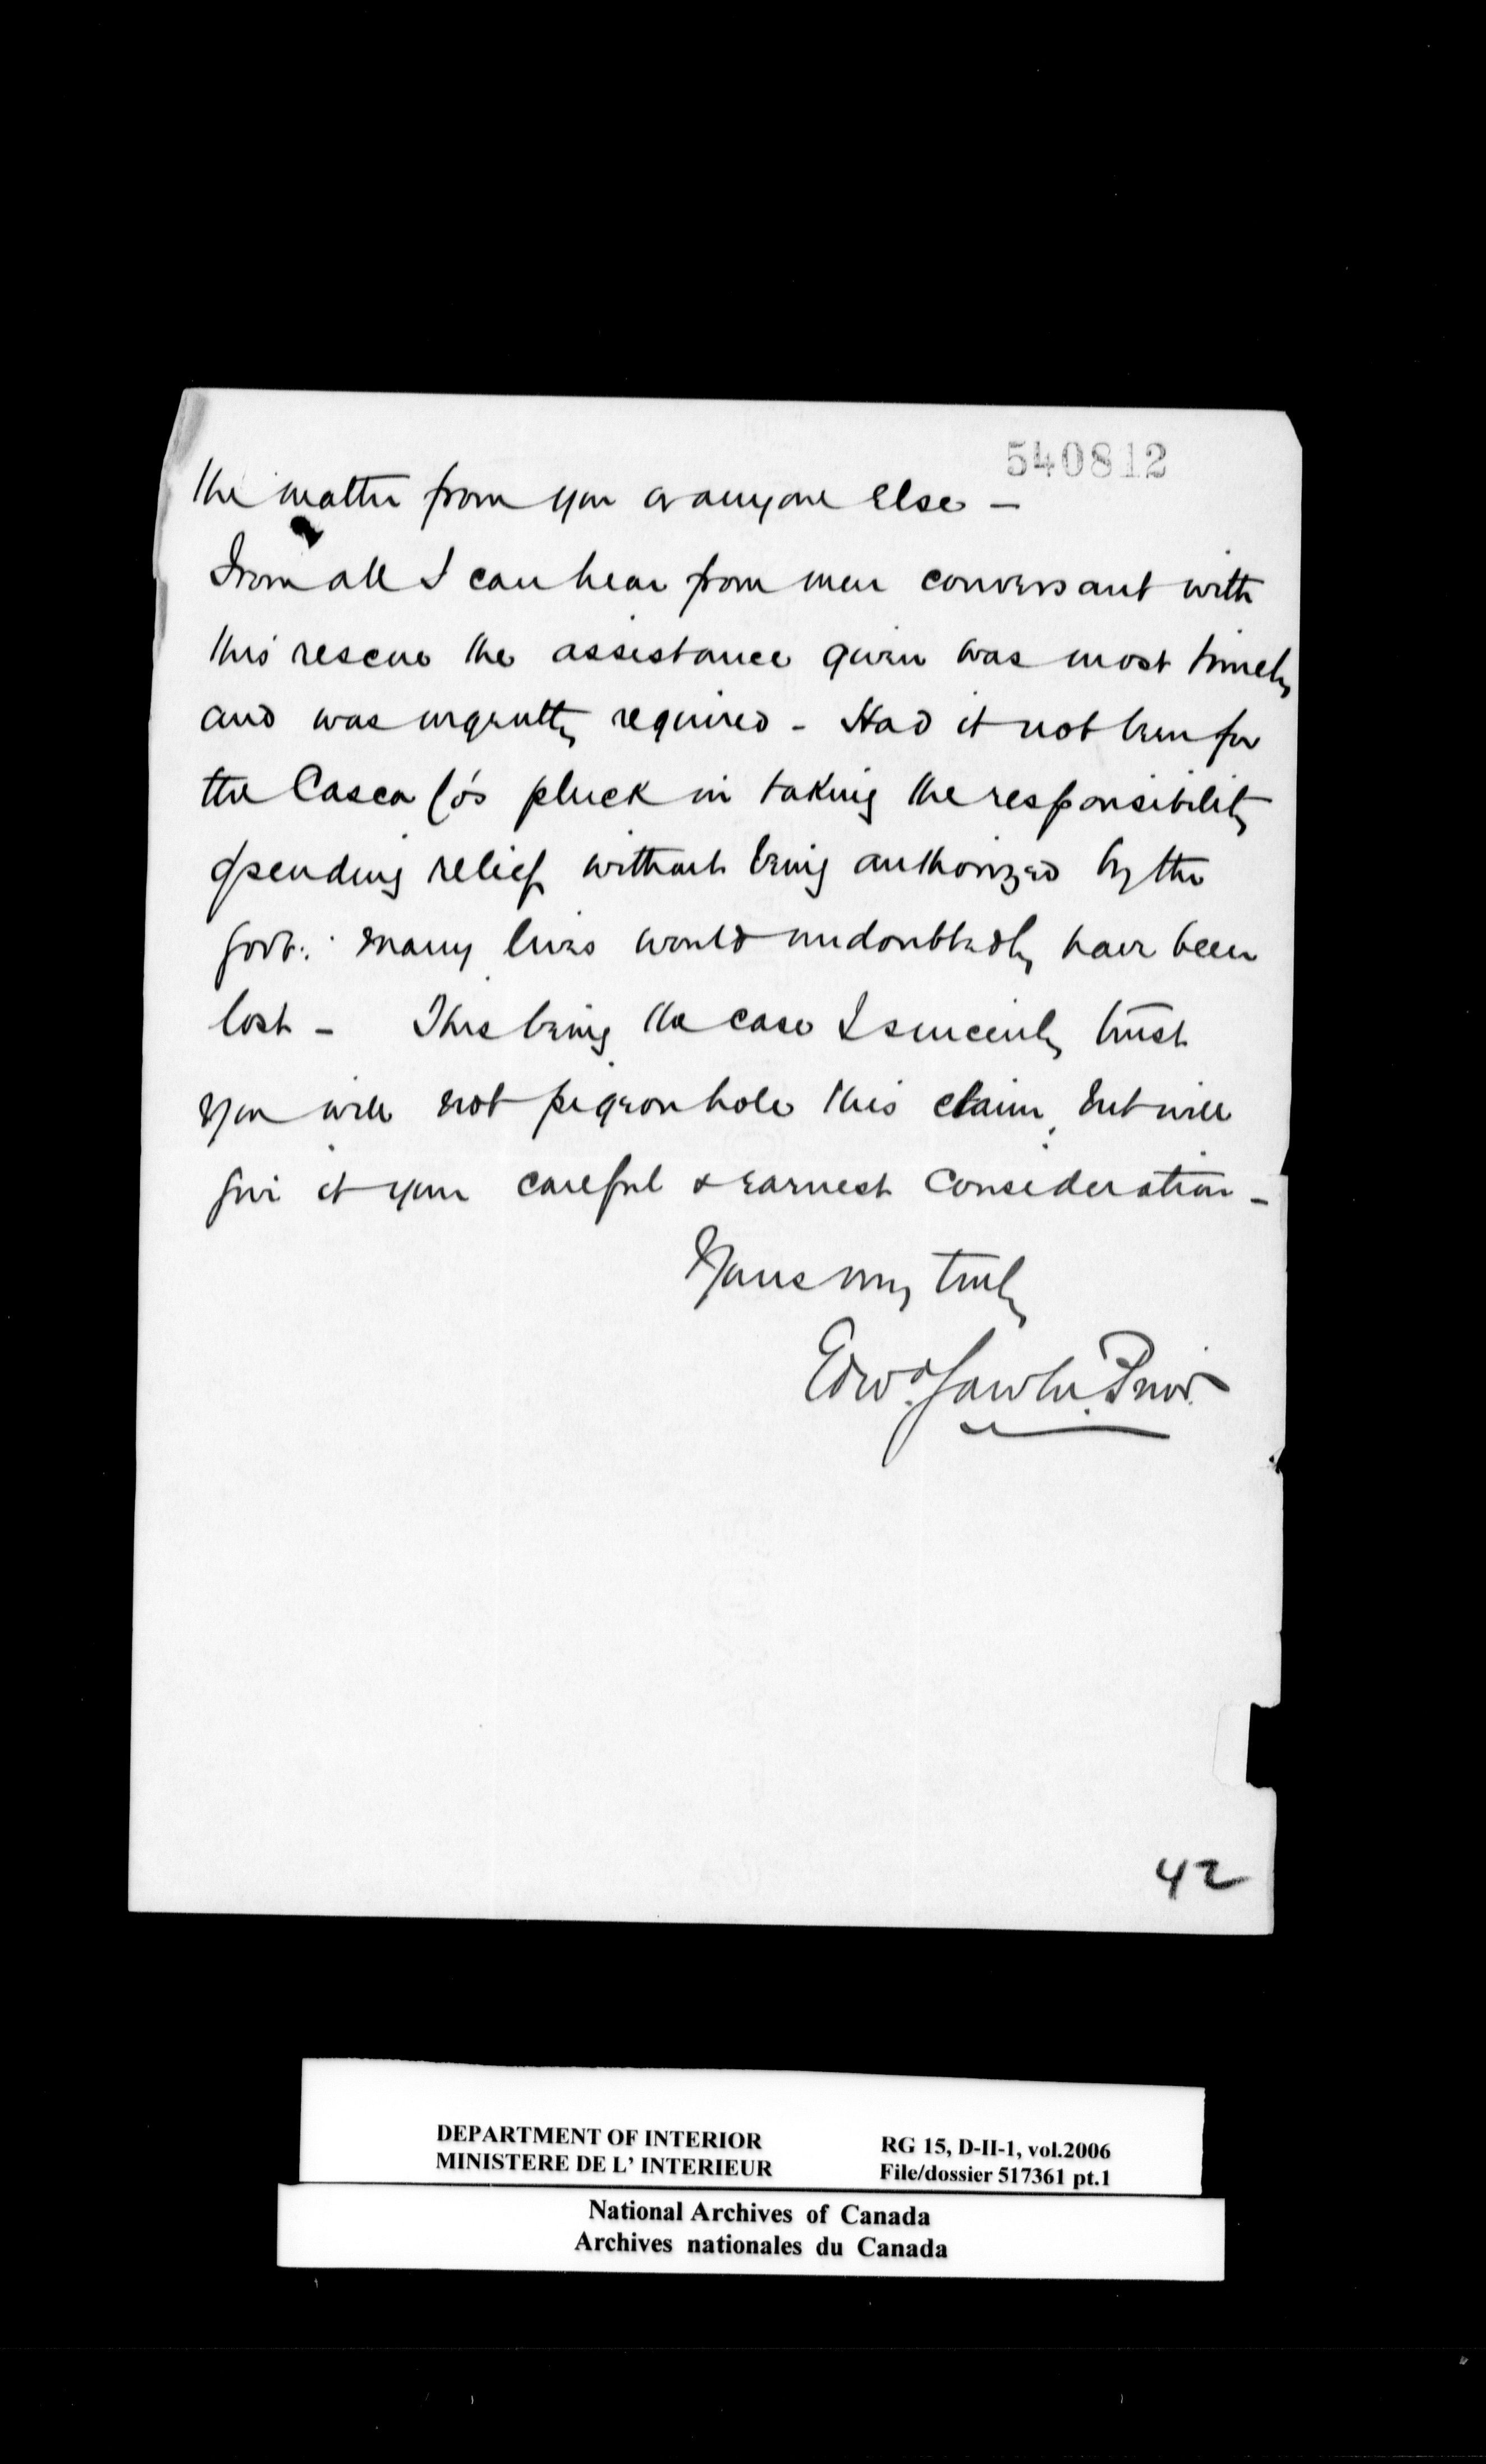 540812
the matter from you or anyone else –
From all I can hear from men conversant with
this rescue the assistance given was most timely
and was urgently required – Had it not been for
the Casca Co's pluck in taking the responsibility
of sending relief without being authorized by the
Govt: many lives would undoubtedly have been
lost – This being the case I sincerely trust
you will not pigeonhole this claim, but will
give it your careful & earnest consideration –
Yours very truly
Edwd. Gawler Prior.
42
DEPARTMENT OF INTERIOR
MINISTERE DE L' INTERIEUR
RG 15, D-II-1, vol.2006
File/dossier 517361 pt.1
National Archives of Canada
Archives nationales du Canada